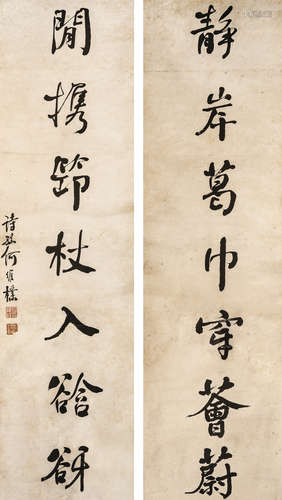 静岸葛巾穿薈蔚
閒攜笻杖入谽谺
詩孫何維樸